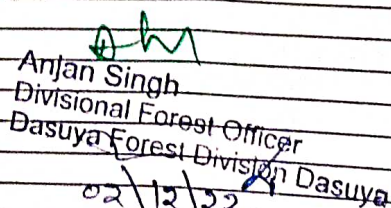 Anjan Singh
Divisional Forest Officer
Dasuya Forest Division Dasuya
02\12\22